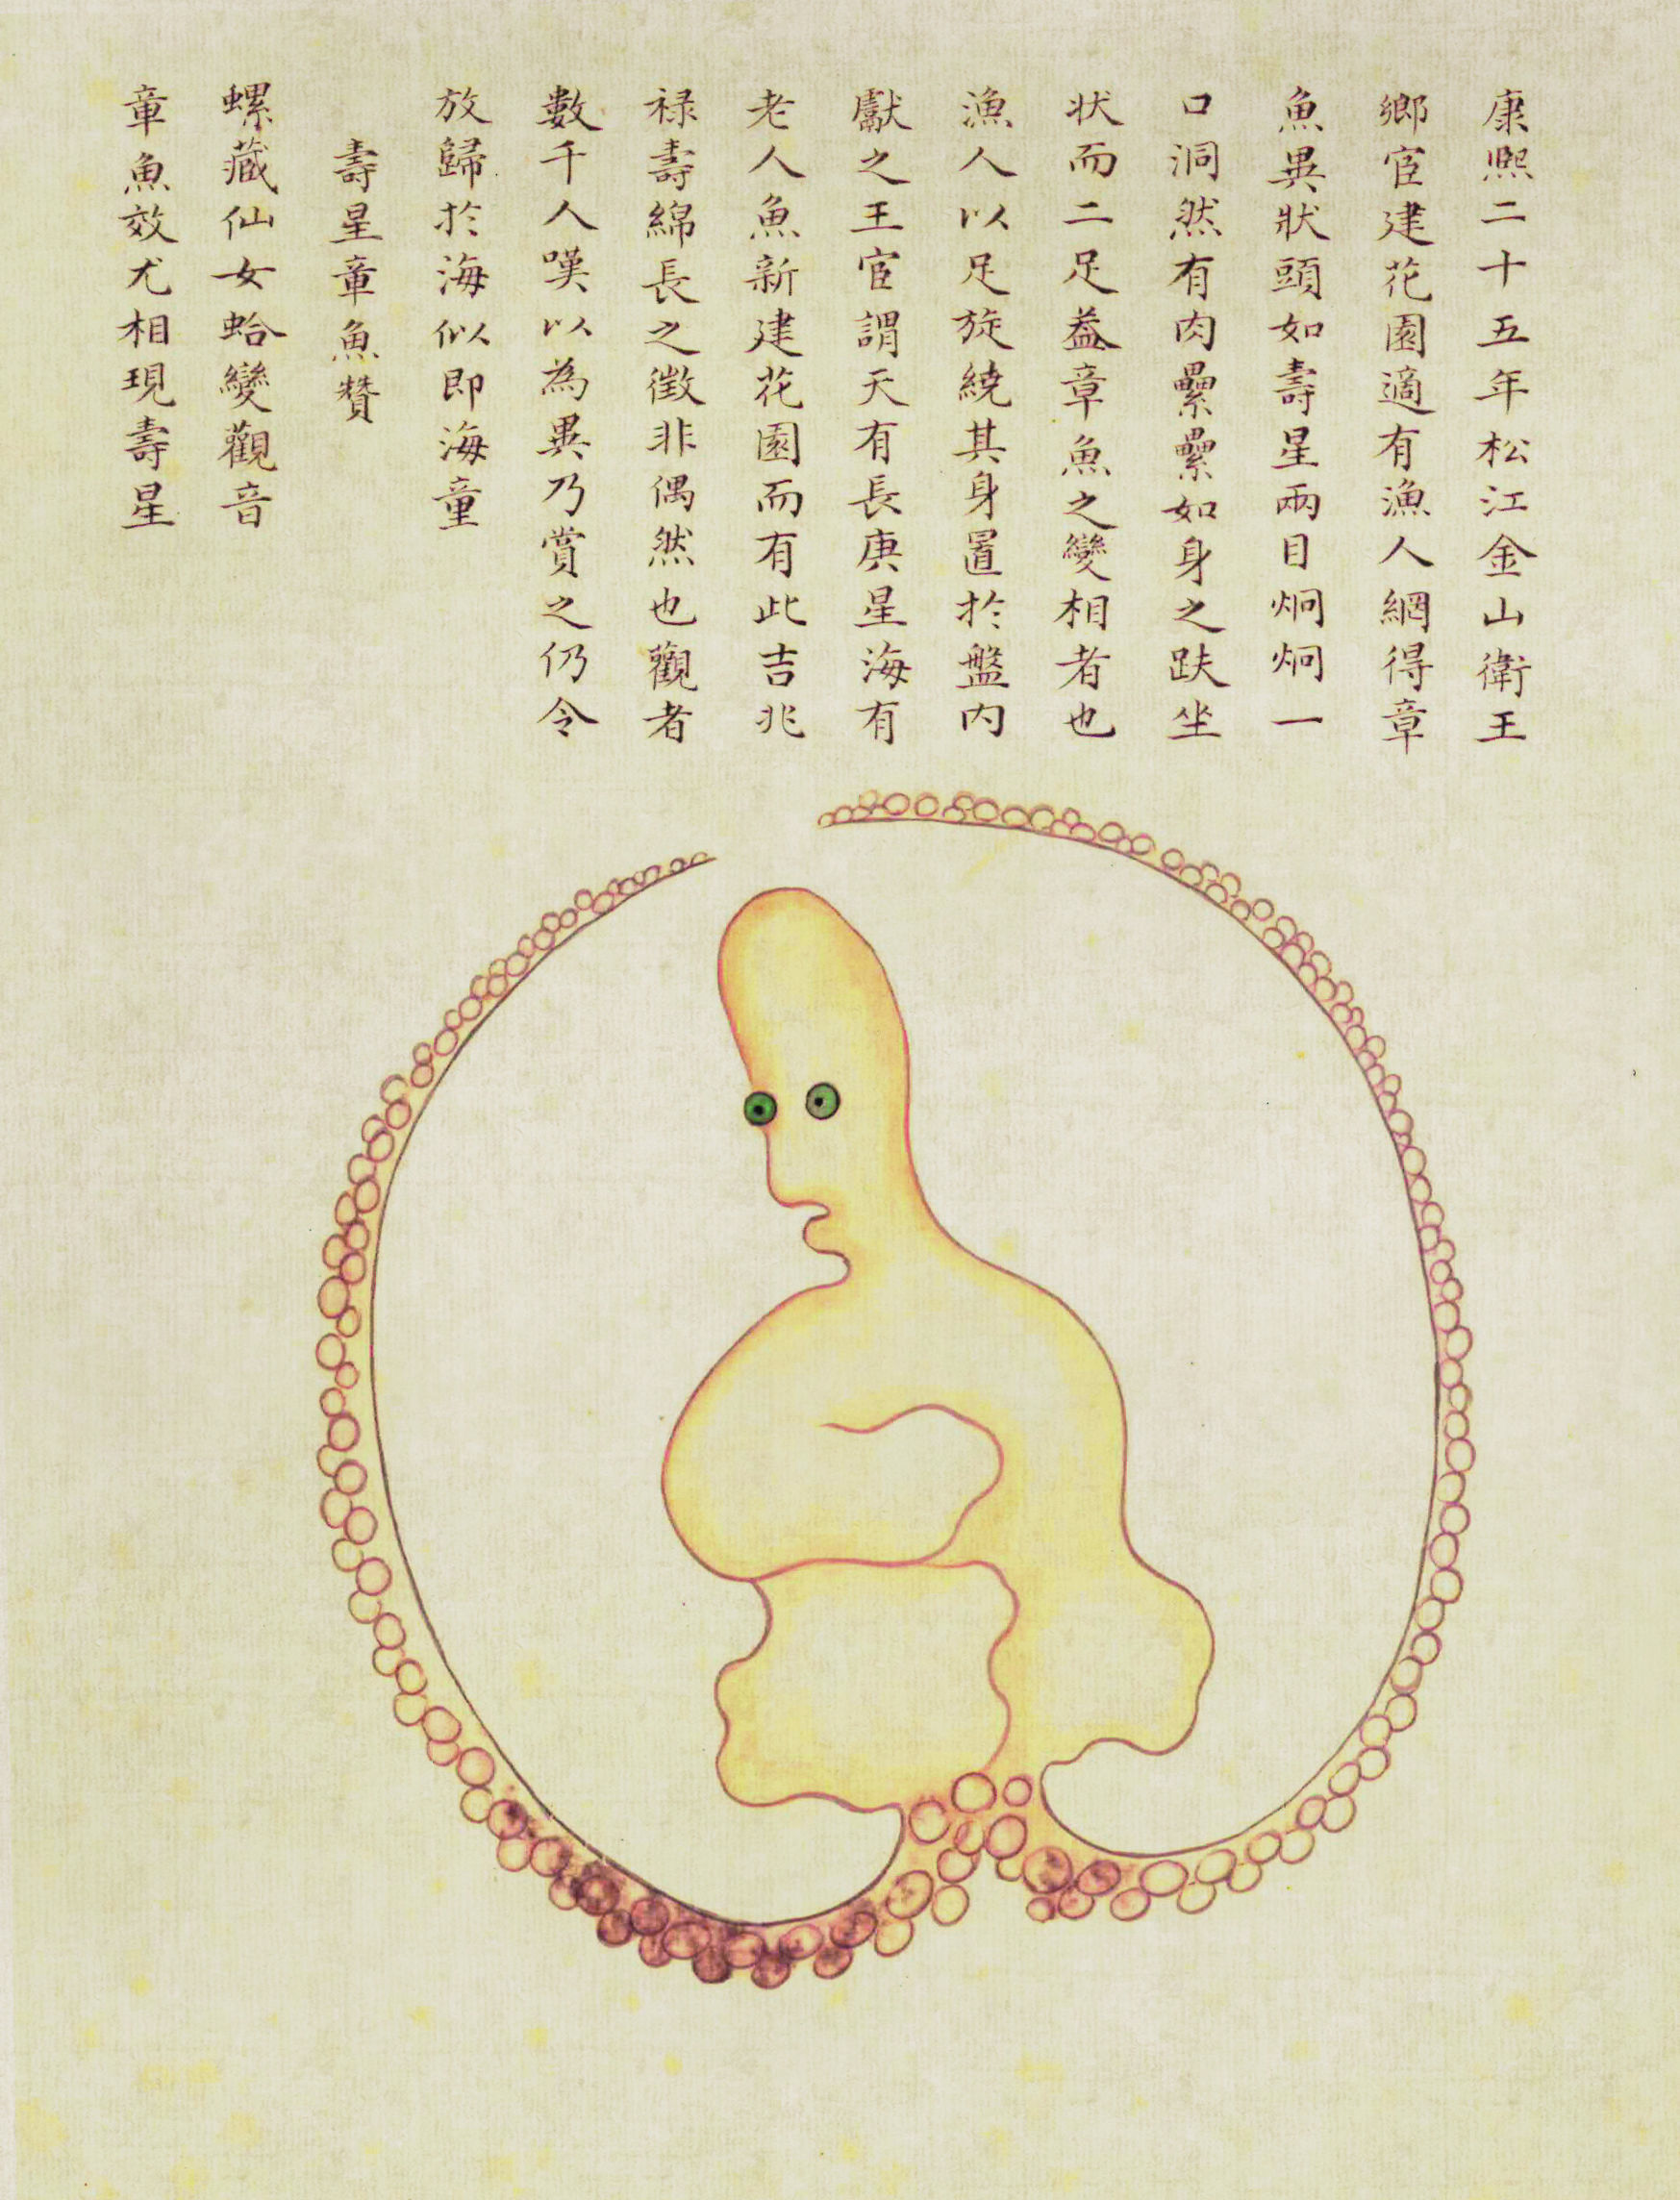 康熙二十五年松江金山衛王
鄉宦建花園適有漁人網得章
魚異狀頭如壽星兩目炯炯一
口洞然有肉纍纍如身之趺坐
状而二足葢章魚之變相者也
漁人以足旋繞其身置於盤內
獻之王宦謂天有長庚星海有
老人魚新建花園而有此吉兆
禄壽綿長之徵非偶然也觀者
數千人嘆以為異乃賞之仍令
放歸於海似即海童
壽星章魚贊
螺藏仙女蛤變觀音
章魚效尤相現壽星